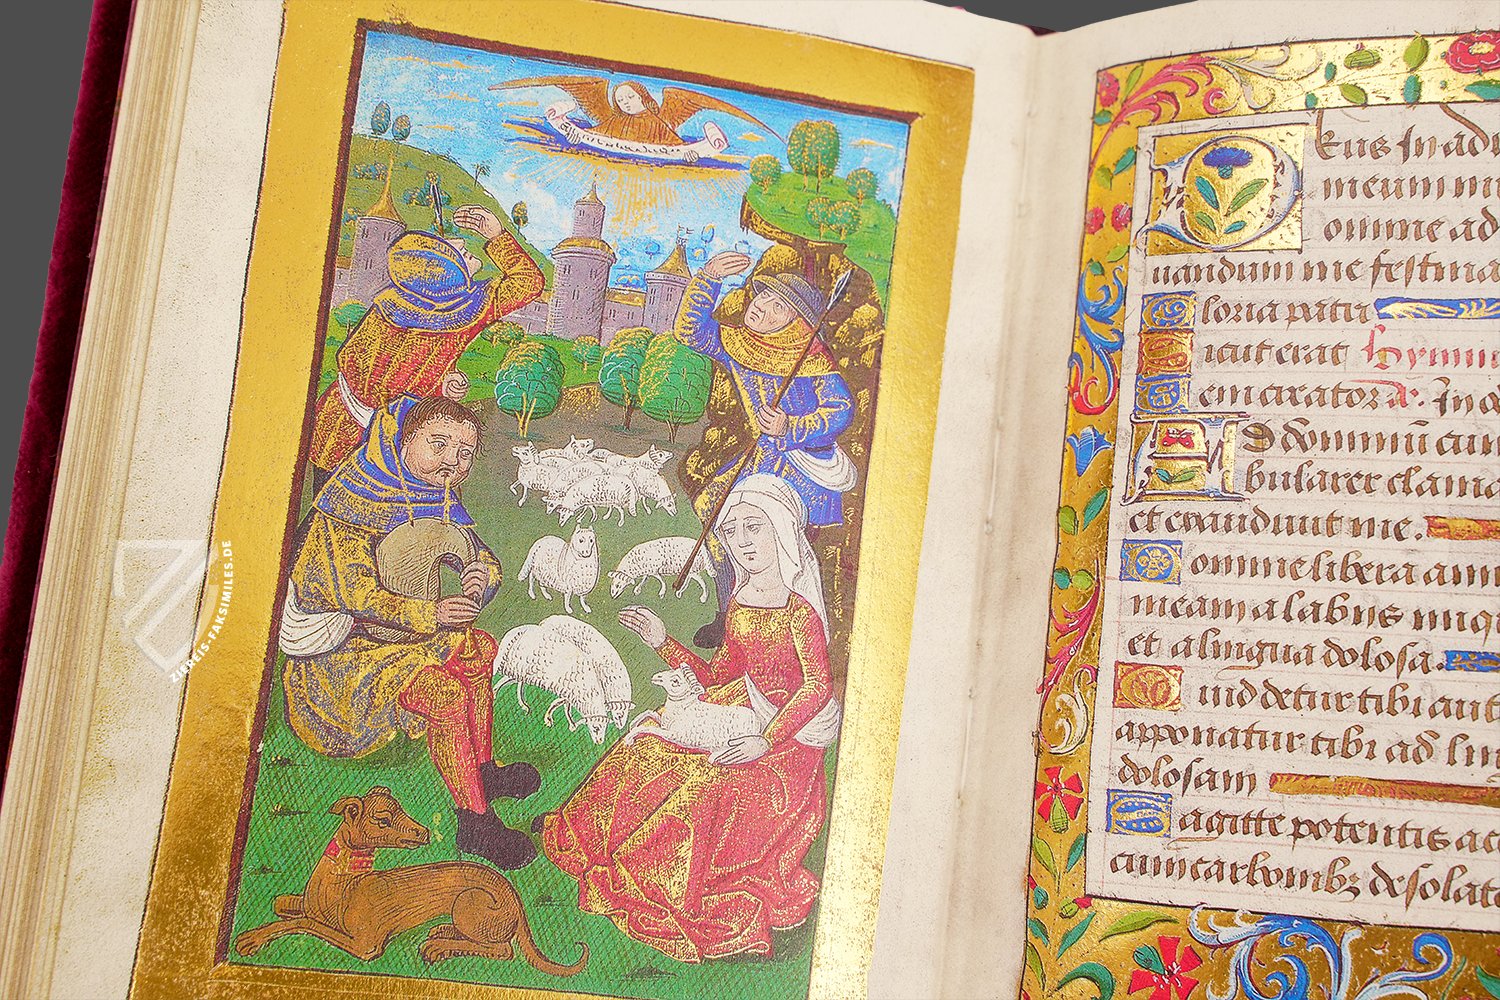 ZIEREIS-FAKSIMILES.DE
Deus in adiu
meum in
omine ad
uuandum me festina
loria patri
icut erat Hymnu
em creator
Ad dominū cum
bularer clama
et exaudiuit me.
omine libera anim
meam a labiis iniq
et a lingua dolosa.
uid detur tibi aut
apponatur tibi ad lin
dolosam
Sagitte potentis ac
cum carbonibz desolato